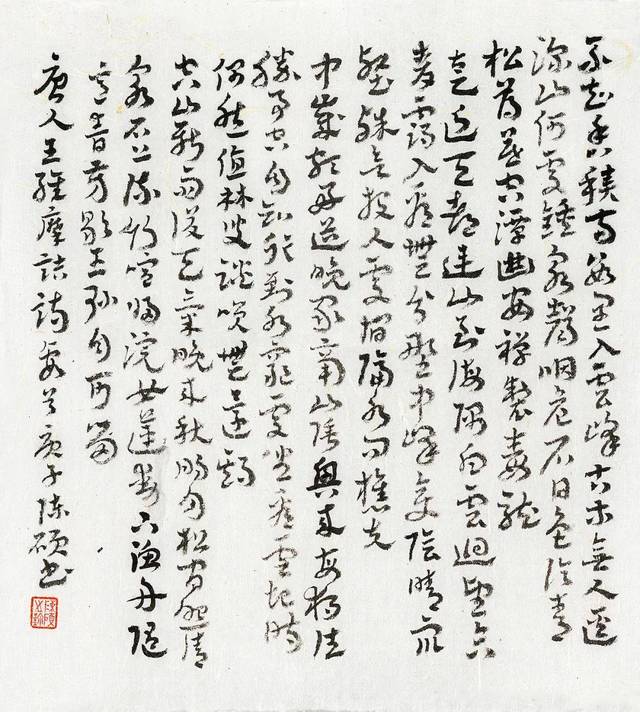 不知香積寺數里入雲峰古木無人逕
深山何處鍾泉聲咽危石日色冷青
松薄暮空潭曲安禪製毒龍
太乙近天都連山到海隅白雲迴望合
青靄入看無分野中峰變陰晴衆
壑殊欲投人處宿隔水問樵夫
中歲頗好道晚家南山陲興來每獨往
勝事空自知行到水窮處坐看雲起時
偶然值林叟談笑無還期
空山新雨後天氣晚來秋明月松間照清
泉石上流竹喧歸浣女蓮動下漁舟隨
意春芳歇王孫自可留
唐人王維摩詰詩數首庚子陳碩書